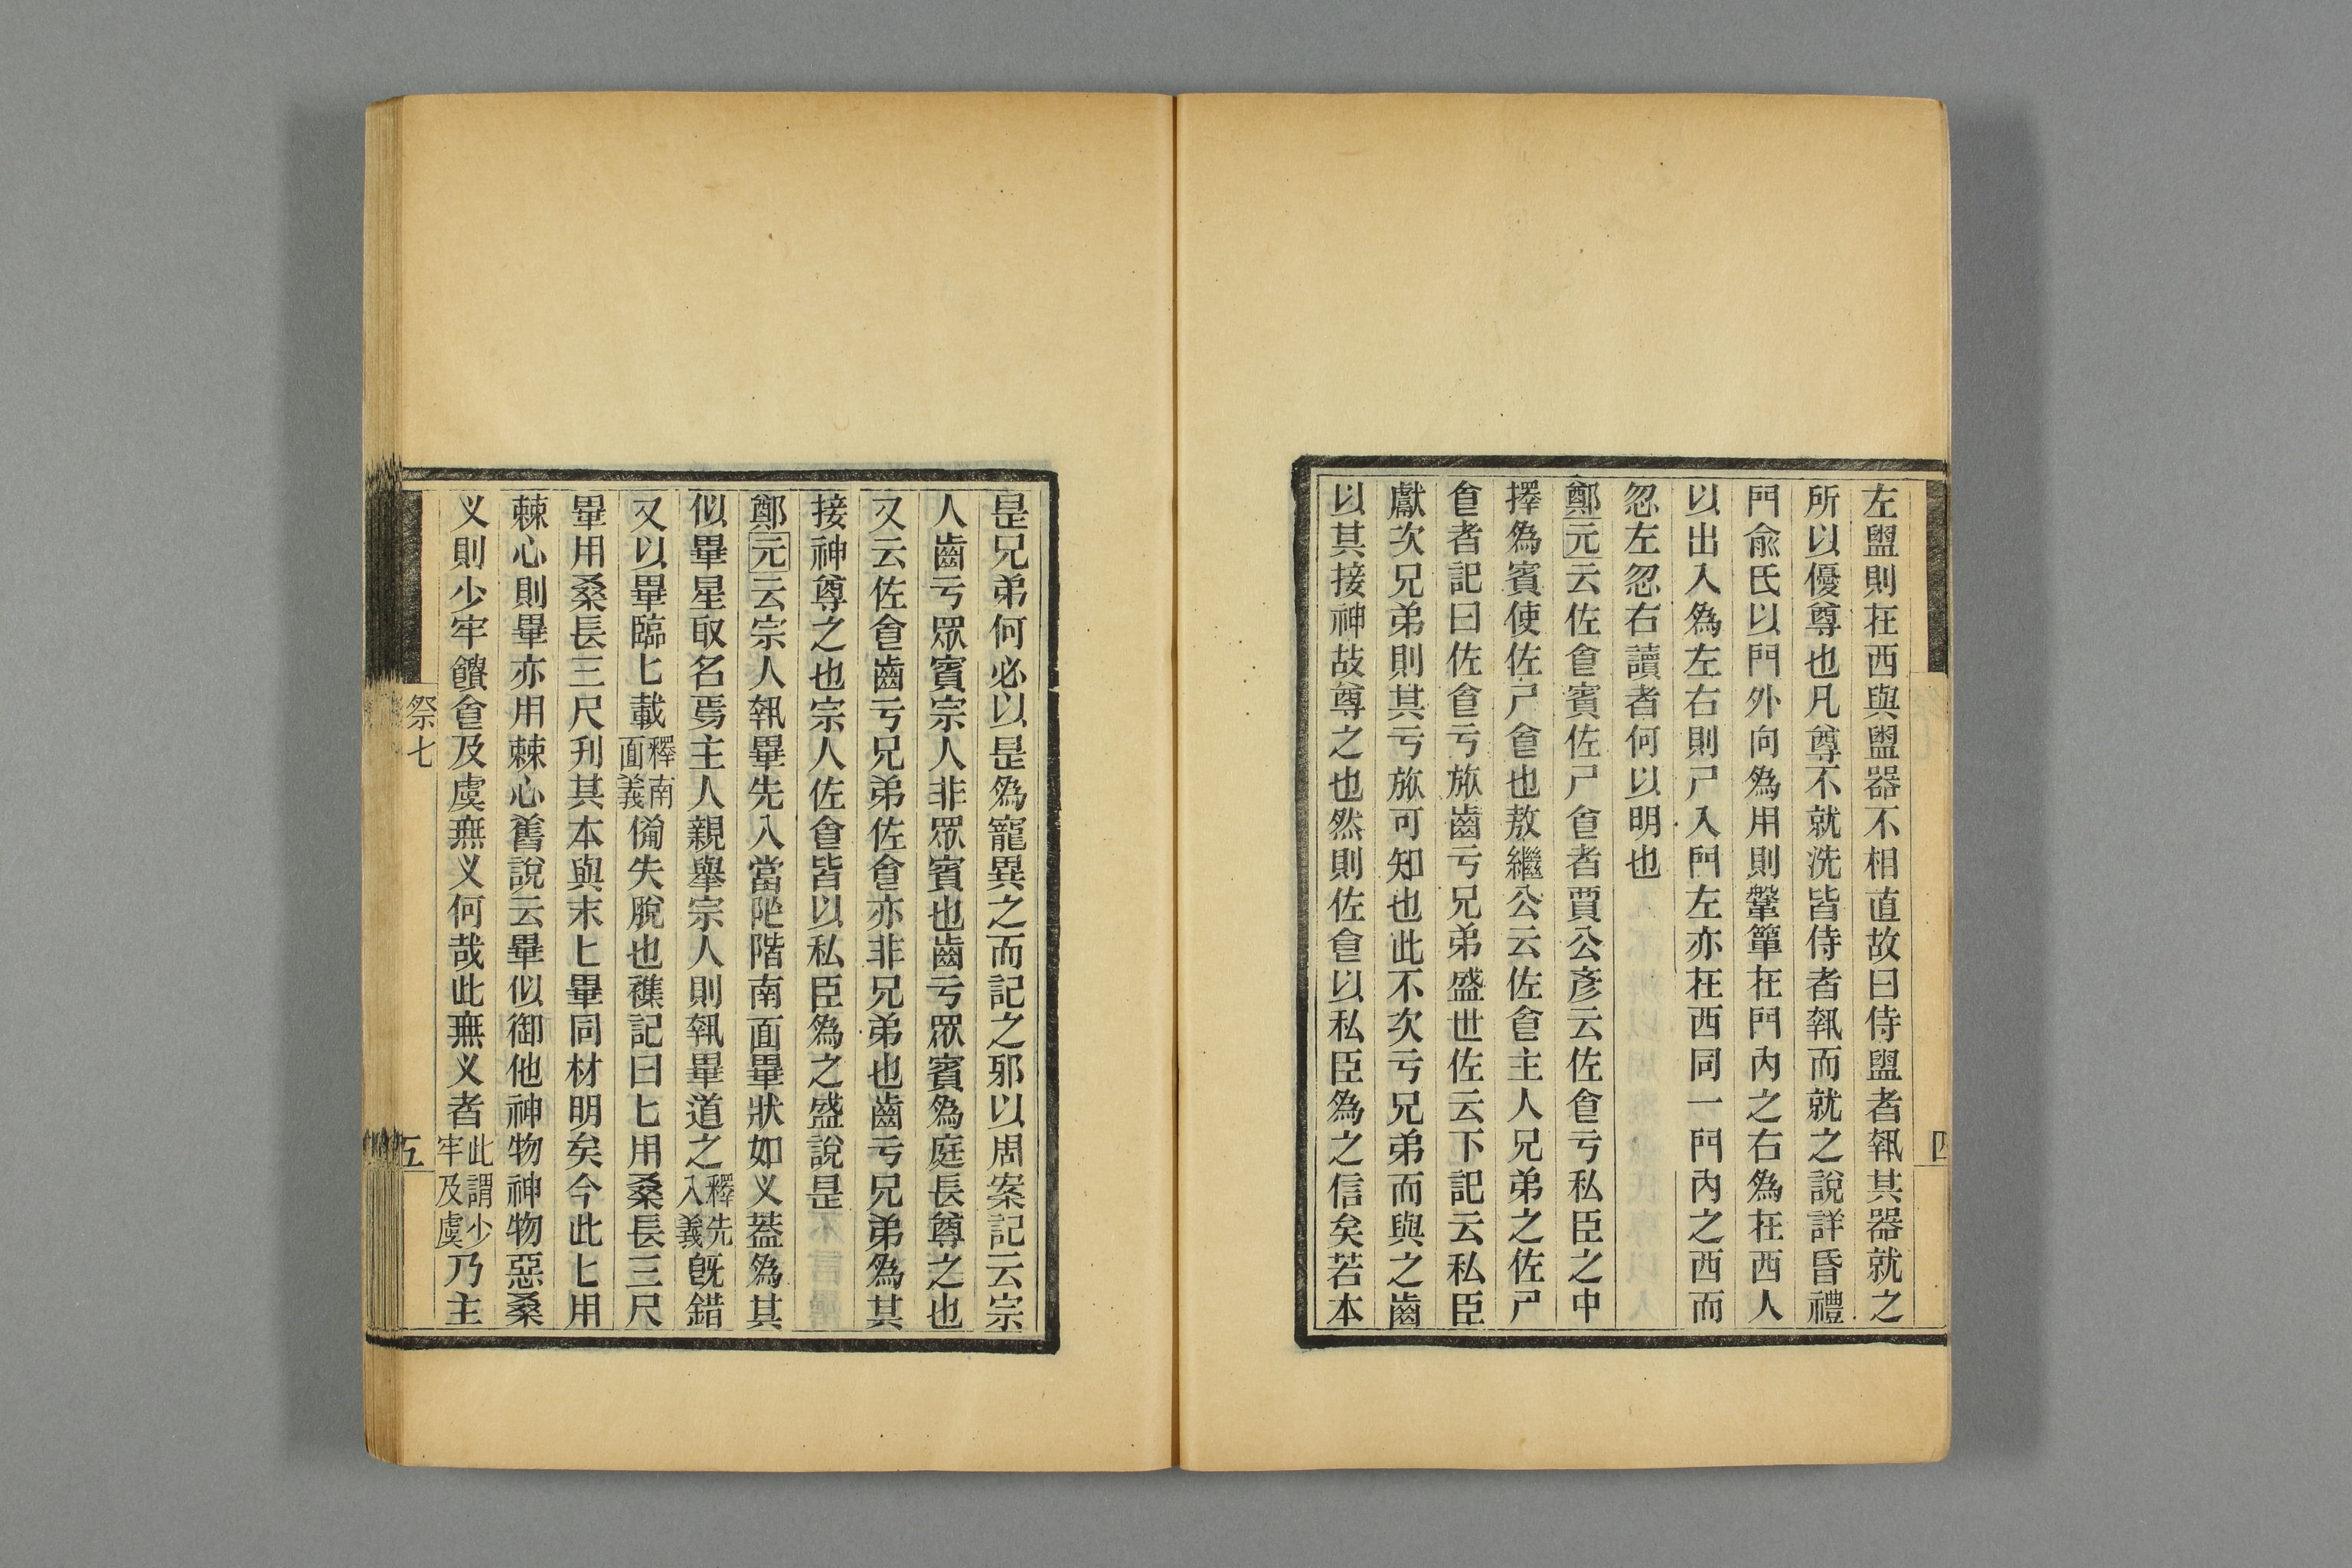 左盥則在西與盥器不相直故曰侍盥者執其器就之
所以優尊也凡尊不就洗皆侍者執而就之說詳昏禮
門俞氏以門外向爲用則鞶簞在門內之右爲在西人
以出入爲左右則尸入門左亦在西同一門內之西而
忽左忽右讀者何以明也
鄭元云佐食賓佐尸食者賈公彥云佐食亏私臣之中
擇爲賓使佐尸食也敖繼公云佐食主人兄弟之佐尸
食者記曰佐食亏旅齒亏兄弟盛世佐云下記云私臣
獻次兄弟則其亏旅可知也此不次亏兄弟而與之齒
以其接神故尊之也然則佐食以私臣爲之信矣若本
是兄弟何必以是爲寵異之而記之邪以周案記云宗
人齒亏眾賓宗人非眾賓也齒亏眾賓爲庭長尊之也
又云佐食齒亏兄弟佐食亦非兄弟也齒亏兄弟爲其
接神尊之也宗人佐食皆以私臣爲之盛說是
鄭元云宗人執畢先入當阼階南面畢狀如义葢爲其
似畢星取名焉主人親舉宗人則執畢道之釋先入義旣錯
又以畢臨匕載釋南面義備失脫也襍記曰匕用桑長三尺
畢用桑長三尺刋其本與末匕畢同材明矣今此匕用
棘心則畢亦用棘心舊說云畢似御他神物神物惡桑
义則少牢饋食及虞無义何哉此無义者此謂少牢及虞乃主
祭七
五
四